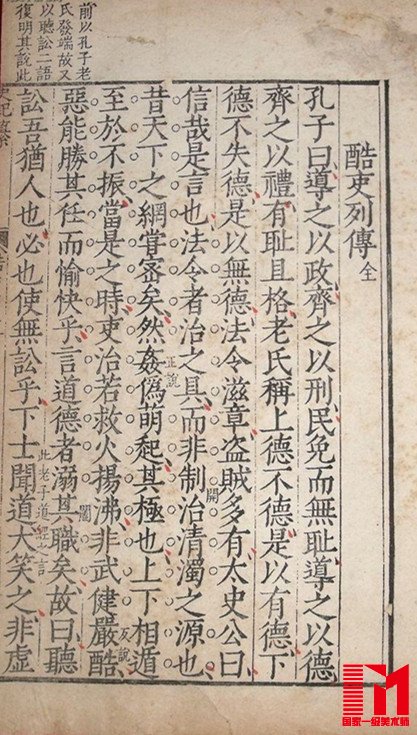 酷吏列傳全
孔子曰導之以政齊之以刑民免而無恥導之以德
齊之以禮有恥且格老氏稱上德不德是以有德下
德不失德是以無德法令滋章盜賊多有太史公曰
信哉是言也法令者治之具而非制治清濁之源也
昔天下之網嘗密矣然姦偽萌起其極也上下相遁
至於不振當是之時吏治若救火揚沸非武健嚴酷
惡能勝其任而愉快乎言道德者溺其職矣故曰聽
訟吾猶人也必也使無訟乎下士聞道大笑之非虛
前以孔子老
氏發端故又
以聽訟二語
復明其說此
開
正說
反說
此老子道經之言
國家一級美术師